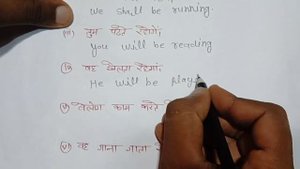 We shall be running.
(iii) तुम पढ़ते रहोगे।
You will be reading
(iv) वह खेलता रहेगा।
He will be play
(v) वेलोग काम करते
(vi) वह गाना गाता